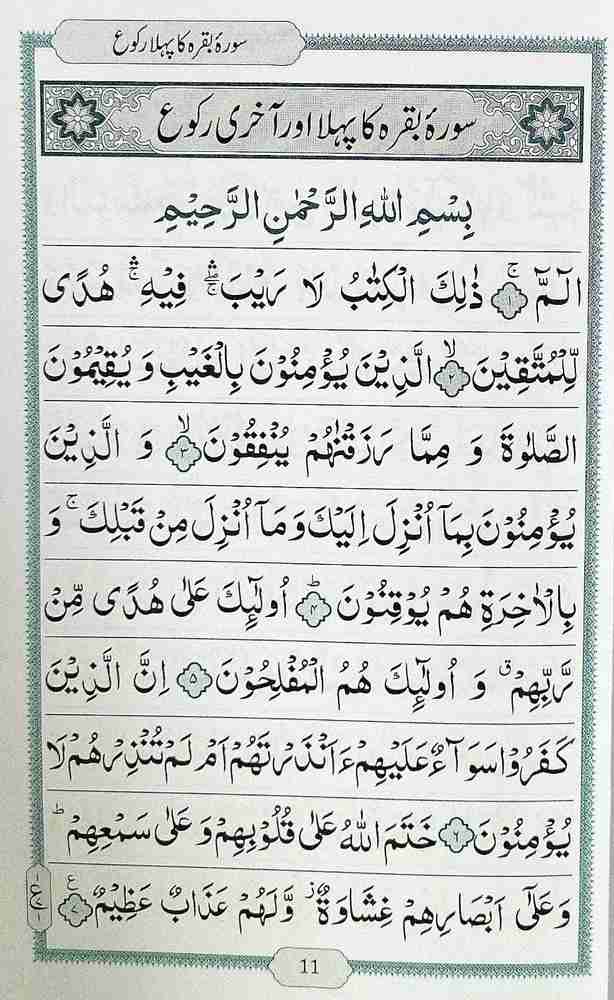 سورۂ بقرہ کا پہلا رکوع
سورۂ بقرہ کا پہلا اور آخری رکوع
بِسْمِ اللهِ الرَّحْمٰنِ الرَّحِيْمِ
الٓمّٓ ۚ﴿۱﴾ ذٰلِكَ الْكِتٰبُ لَا رَيْبَ ۛۖ فِيْهِ ۛۚ هُدًى
لِّلْمُتَّقِيْنَ ۙ﴿۲﴾ الَّذِيْنَ يُؤْمِنُوْنَ بِالْغَيْبِ وَ يُقِيْمُوْنَ
الصَّلٰوةَ وَ مِمَّا رَزَقْنٰهُمْ يُنْفِقُوْنَ ۙ﴿۳﴾ وَ الَّذِيْنَ
يُؤْمِنُوْنَ بِمَاۤ اُنْزِلَ اِلَيْكَ وَ مَاۤ اُنْزِلَ مِنْ قَبْلِكَ ۚ وَ
بِالْاٰخِرَةِ هُمْ يُوْقِنُوْنَ ؕ﴿۴﴾ اُولٰٓئِكَ عَلٰى هُدًى مِّنْ
رَّبِّهِمْ ۗ وَ اُولٰٓئِكَ هُمُ الْمُفْلِحُوْنَ ﴿۵﴾ اِنَّ الَّذِيْنَ
كَفَرُوْا سَوَآءٌ عَلَيْهِمْ ءَاَنْذَرْتَهُمْ اَمْ لَمْ تُنْذِرْهُمْ لَا
يُؤْمِنُوْنَ ﴿۶﴾ خَتَمَ اللهُ عَلٰى قُلُوْبِهِمْ وَ عَلٰى سَمْعِهِمْ ؕ
وَ عَلٰۤى اَبْصَارِهِمْ غِشَاوَةٌ ؗ وَّ لَهُمْ عَذَابٌ عَظِيْمٌ ﴿۷﴾ ع
11